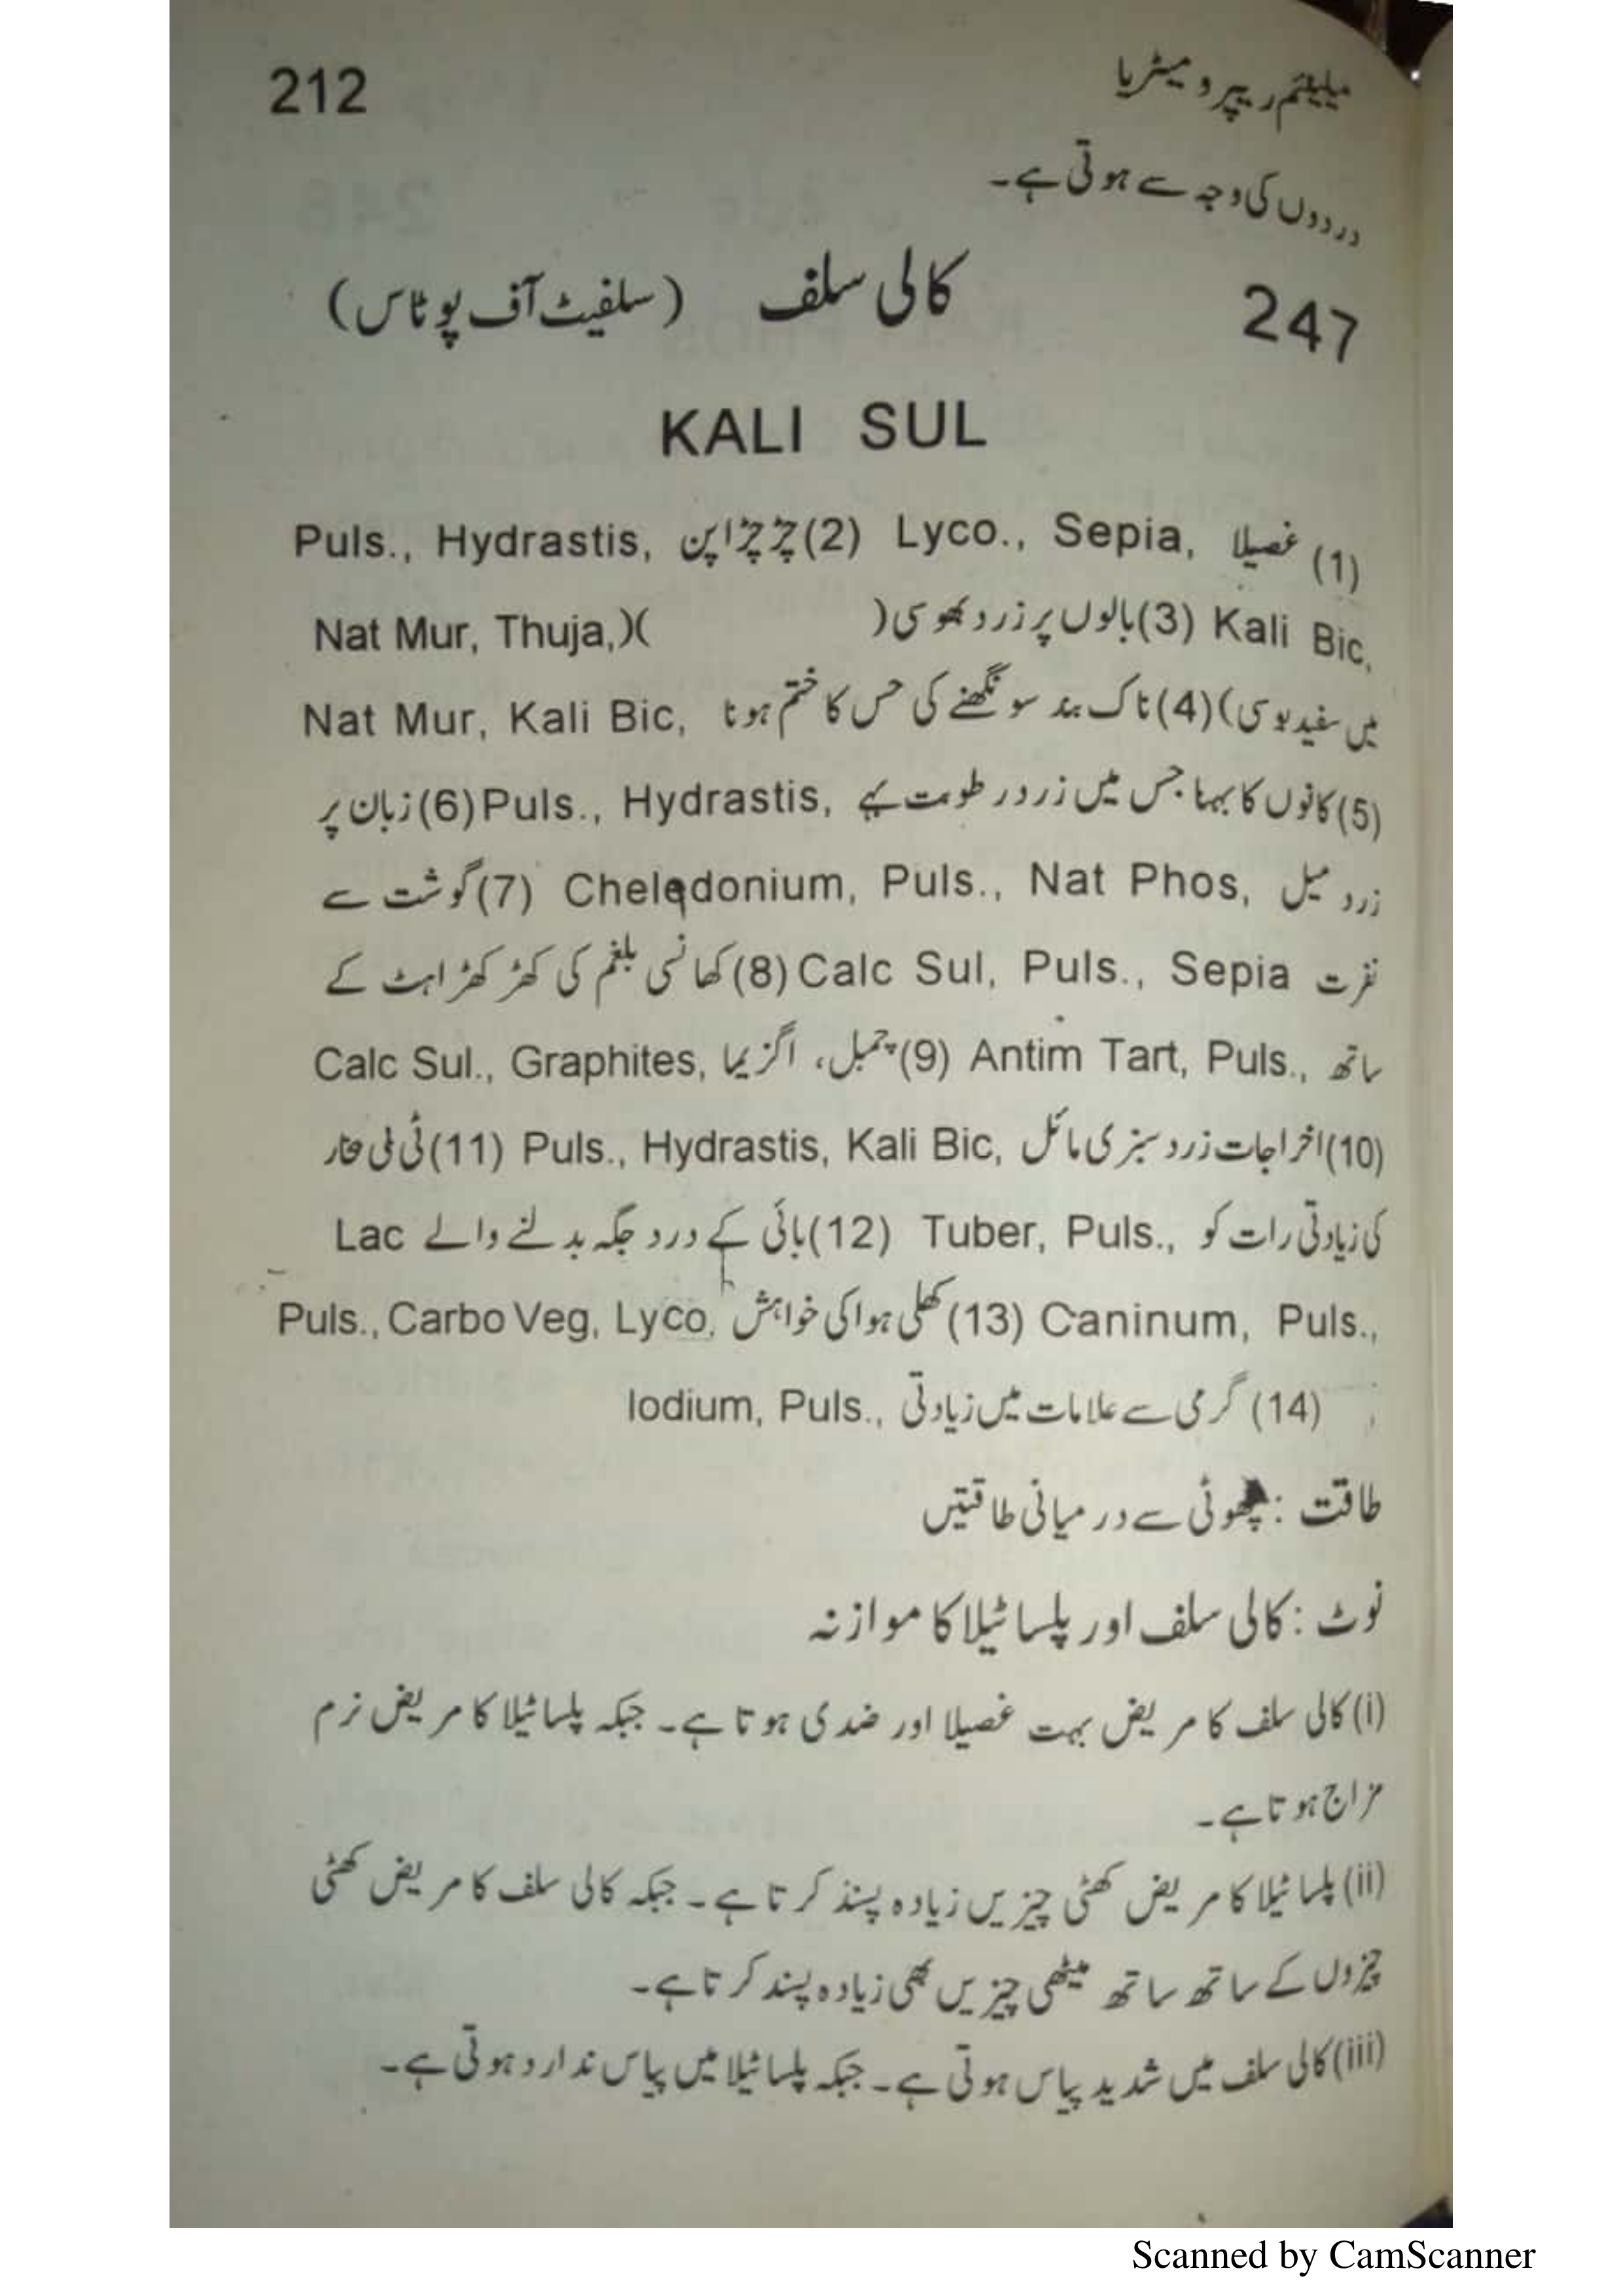 212
میلینیم ریپرومیٹریا
دردوں کی وجہ سے ہوتی ہے۔
247 کالی سلف (سلفیٹ آف پوٹاس)
KALI SUL
(1) غصیلا Lyco., Sepia, (2) چڑچڑاپن Puls., Hydrastis,
Kali Bic, (3) بالوں پر زرد بھوسی( )(Nat Mur, Thuja,
میں سفید بوسی)(4) ناک بند سونگھنے کی حس کا ختم ہونا Nat Mur, Kali Bic,
(5) کانوں کا بہنا جس میں زرد رطوبت بہے Puls., Hydrastis, (6) زبان پر
زرد میل Cheledonium, Puls., Nat Phos, (7) گوشت سے
نفرت Calc Sul, Puls., Sepia (8) کھانسی بلغم کی کھڑکھڑاہٹ کے
ساتھ Antim Tart, Puls., (9) چمبل، اگزیما Calc Sul., Graphites,
(10) اخراجات زرد سبزی مائل Puls., Hydrastis, Kali Bic, (11) ٹی بی
کی زیادتی رات کو Tuber, Puls., (12) بائی کے درد جگہ بدلنے والے Lac
Caninum, Puls., (13) کھلی ہوا کی خواہش Puls., Carbo Veg, Lyco,
(14) گرمی سے علامات میں زیادتی Iodium, Puls.,
طاقت : چھوٹی سے درمیانی طاقتیں
نوٹ : کالی سلف اور پلساٹیلا کا موازنہ
(i) کالی سلف کا مریض بہت غصیلا اور ضدی ہوتا ہے۔ جبکہ پلساٹیلا کا مریض نرم
مزاج ہوتا ہے۔
(ii) پلساٹیلا کا مریض کھٹی چیزیں زیادہ پسند کرتا ہے۔ جبکہ کالی سلف کا مریض کھٹی
چیزوں کے ساتھ ساتھ میٹھی چیزیں بھی زیادہ پسند کرتا ہے۔
(iii) کالی سلف میں شدید پیاس ہوتی ہے۔ جبکہ پلساٹیلا میں پیاس ندارد ہوتی ہے۔
Scanned by CamScanner